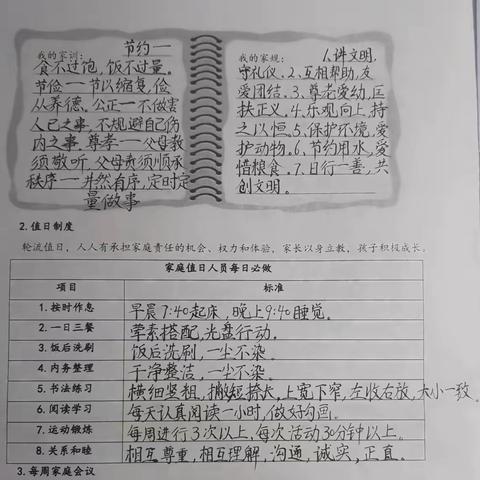 我的家训: 节约一
食不过饱,饭不过量。
节俭一一节以缩复,俭
从养德。公正一不做害
人己之事,不规避自己份
内之事。尊孝一一父母教
须敬听,父母责须顺承
秩序一一井然有序,定时定
量做事
我的家规: 1.讲文明,
守礼仪。2、互相帮助,友
爱团结。3、尊老爱幼,匡
扶正义。4、乐观向上,持
之以恒。5、保护环境,爱
护动物。6、节约用水,爱
惜粮食。7、日行一善,共
创文明。
2. 值日制度
轮流值日,人人有承担家庭责任的机会、权力和体验,家长以身立教,孩子积极成长。
家庭值日人员每日必做
项目 标准
1. 按时作息 早晨7:40起床,晚上9:40睡觉。
2. 一日三餐 荤素搭配,光盘行动。
3. 饭后洗刷 饭后洗刷,一尘不染。
4. 内务整理 干净整洁,一尘不染。
5. 书法练习 横细竖粗,撇短捺大,上宽下窄,左收右放,大小一致。
6. 阅读学习 每天认真阅读一小时,做好勾画。
7. 运动锻炼 每周进行3次以上,每次活动30分钟以上。
8. 关系和睦 相互尊重,相互理解,沟通,诚实,正直。
3. 每周家庭会议